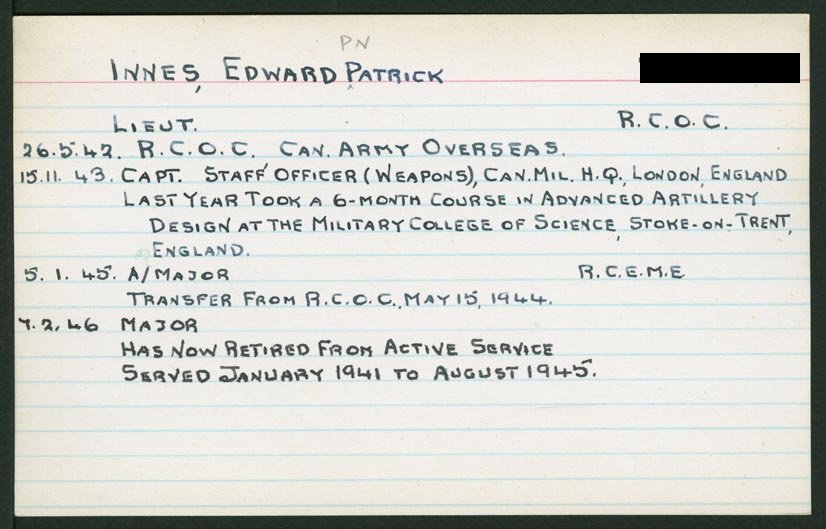 PN
INNES, EDWARD PATRICK
LIEUT. R.C.O.C.
26.5.42. R.C.O.C. CAN. ARMY OVERSEAS.
15.11.43. CAPT. STAFF OFFICER (WEAPONS), CAN. MIL. H.Q., LONDON, ENGLAND
LAST YEAR TOOK A 6-MONTH COURSE IN ADVANCED ARTILLERY
DESIGN AT THE MILITARY COLLEGE OF SCIENCE, STOKE-ON-TRENT,
ENGLAND.
5.1.45. A/MAJOR R.C.E.M.E.
TRANSFER FROM R.C.O.C., MAY 15, 1944.
7.2.46 MAJOR
HAS NOW RETIRED FROM ACTIVE SERVICE
SERVED JANUARY 1941 TO AUGUST 1945.